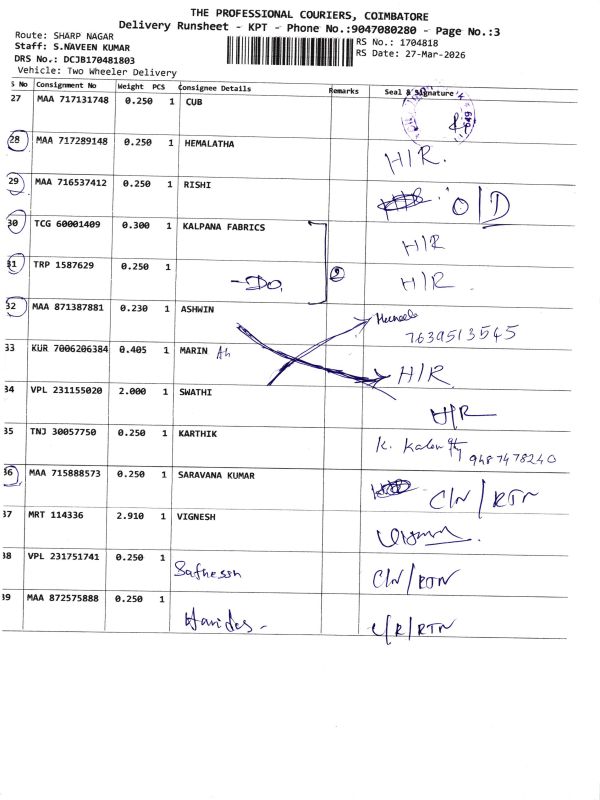 THE PROFESSIONAL COURIERS, COIMBATORE
Delivery Runsheet - KPT - Phone No.:9047080280 - Page No.:3
Route: SHARP NAGAR
RS No.: 1704818
Staff: S.NAVEEN KUMAR
RS Date: 27-Mar-2026
DRS No.: DCJB170481803
Vehicle: Two Wheeler Delivery
S No Consignment No Weight PCS Consignee Details Remarks Seal & Signature
27 MAA 717131748 0.250 1 CUB
28 MAA 717289148 0.250 1 HEMALATHA H/R.
29 MAA 716537412 0.250 1 RISHI O/D
30 TCG 60001409 0.300 1 KALPANA FABRICS H/R
31 TRP 1587629 0.250 1 -Do. 2 H/R.
32 MAA 871387881 0.230 1 ASHWIN
7639513545
33 KUR 7006206384 0.405 1 MARIN H/R
34 VPL 231155020 2.000 1 SWATHI H/R
35 TNJ 30057750 0.250 1 KARTHIK K. 9487478240
36 MAA 715888573 0.250 1 SARAVANA KUMAR C/N/RTN
37 MRT 114336 2.910 1 VIGNESH
38 VPL 231751741 0.250 1 C/N/RTN
39 MAA 872575888 0.250 1 Haridas L/R/RTN